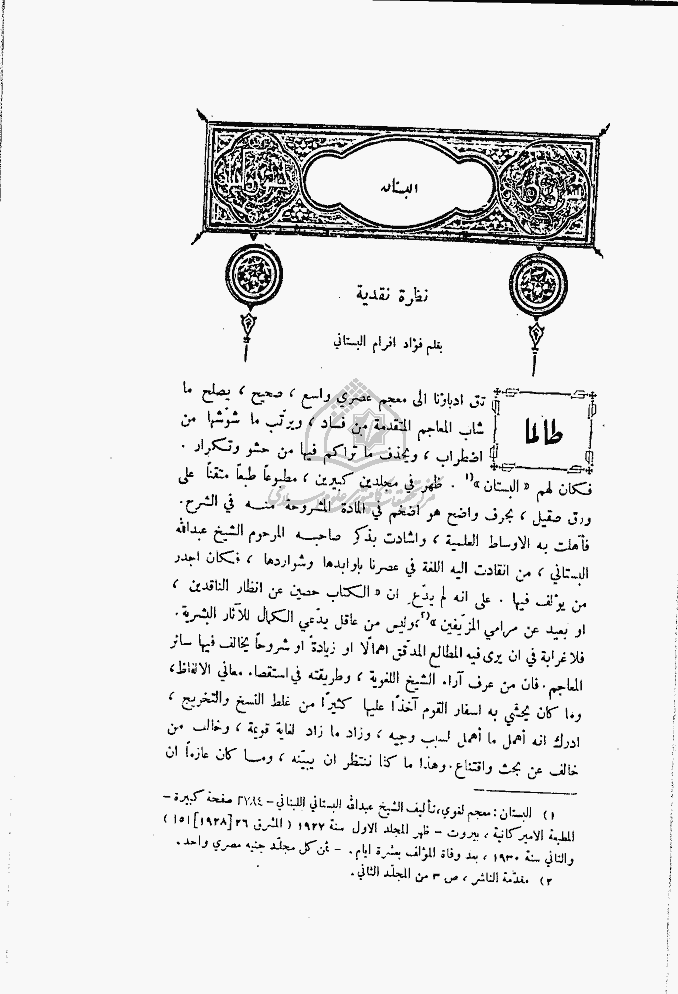 البستان
نظرة نقدية
بقلم فؤاد افرام البستاني
طالما
تق ادباؤنا الى معجم عصري واسع ، صحيح ، يصلح ما
شاب المعاجم المتقدمة من فساد ، ويرتّب ما شوّشها من
اضطراب ، ويحذف ما تراكم فيها من حشو وتكرار .
فكان لهم « البستان »١) . ظهر في مجلدين كبيرين ، مطبوعاً طبعاً متقناً على
ورق صقيل ، بحرف واضح هو اضخم في المادة المشروحة منه في الشرح.
فأهلت به الاوساط العلمية ، واشادت بذكر صاحبه المرحوم الشيخ عبدالله
البستاني ، من انقادت اليه اللغة في عصرنا باوابدها وشواردها ، فكان اجدر
من يؤلف فيها . على انه لم يدّع ان « الكتاب حصين عن انظار الناقدين ،
او بعيد عن مرامي المزيّفين »٢)، وليس من عاقل يدّعي الكمال للآثار البشرية.
فلا غرابة في ان يرى فيه المطالع المدقق اهمالًا او زيادة او شروحاً يخالف فيها سائر
المعاجم. فان من عرف آراء الشيخ اللغوية ، وطريقته في استقصاء معاني الالفاظ،
وما كان يحشّي به اسفار القوم آخذًا عليها كثيرًا من غلط النسخ والتخريج ،
ادرك انه أهمل ما أهمل لسبب وجيه ، وزاد ما زاد لغاية قويمة ، وخالف من
خالف عن بحث واقتناع. وهذا ما كنا ننتظر ان يبيّنه ، ومسا كان عازماً ان
١) البستان : معجم لغوي، تأليف الشيخ عبدالله البستاني اللبناني – ٢٧٨٤ صفحة كبيرة –
المطبعة الاميركانية ، بيروت – ظهر المجلد الاول سنة ١٩٢٧ ( المشرق ٢٦ [١٩٢٨] ١٥١ )
والثاني سنة ١٩٣٠ ، بعد وفاة المؤلف بعشرة ايام. – ثمن كل مجلّد جنيه مصري واحد.
٢) مقدّمة الناشر ، ص ٣ من المجلّد الثاني.